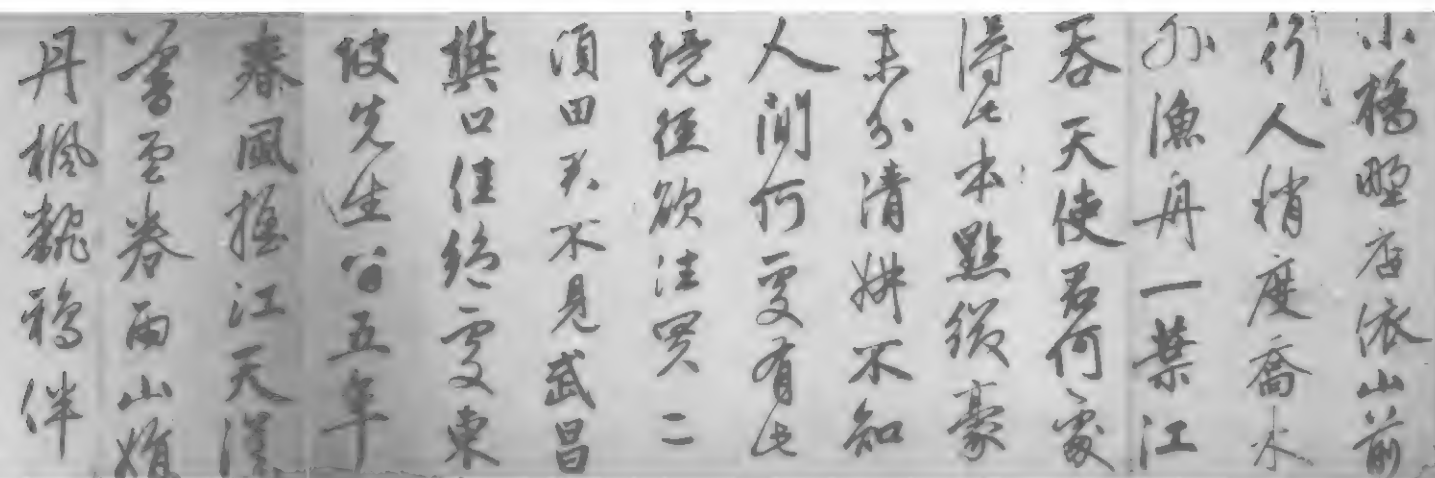 小橋野店依山前
行人稍度喬木
外漁舟一葉江
吞天使君何處
得此本點綴豪
末分清妍不知
人間何處有此
境徑欲往買二
頃田君不見武昌
樊口佳絕處東
坡先生留五年
春風搖江天漠
暮雲卷雨山娟
丹楓翻鴉伴